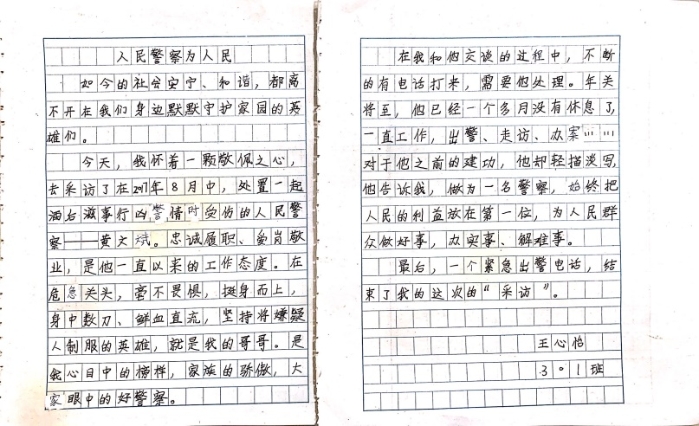 人民警察为人民
如今的社会安宁、和谐，都离
不开在我们身边默默守护家园的英
雄们。
今天，我怀着一颗敬佩之心，
去采访了在2017年8月中，处置一起
酒后滋事行凶警情时负伤的人民警
察——黄文斌。忠诚履职、爱岗敬
业，是他一直以来的工作态度。在
危急关头，毫不畏惧，挺身而上，
身中数刀、鲜血直流，坚持将嫌疑
人制服的英雄，就是我的哥哥。是
我心目中的榜样，家族的骄傲，大
家眼中的好警察。
在我和他交谈的过程中，不断
的有电话打来，需要他处理。年关
将至，他已经一个多月没有休息了，
一直工作，出警、走访、办案……
对于他之前的建功，他却轻描淡写，
他告诉我，做为一名警察，始终把
人民的利益放在第一位，为人民群
众做好事，办实事、解难事。
最后，一个紧急出警电话，结
束了我的这次的“采访”。
王心怡
3。1班